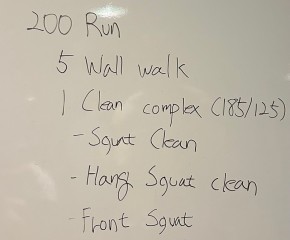 200 Run
5 Wall walk
1 Clean complex (185/125)
- Squat Clean
- Hang Squat clean
- Front Squat